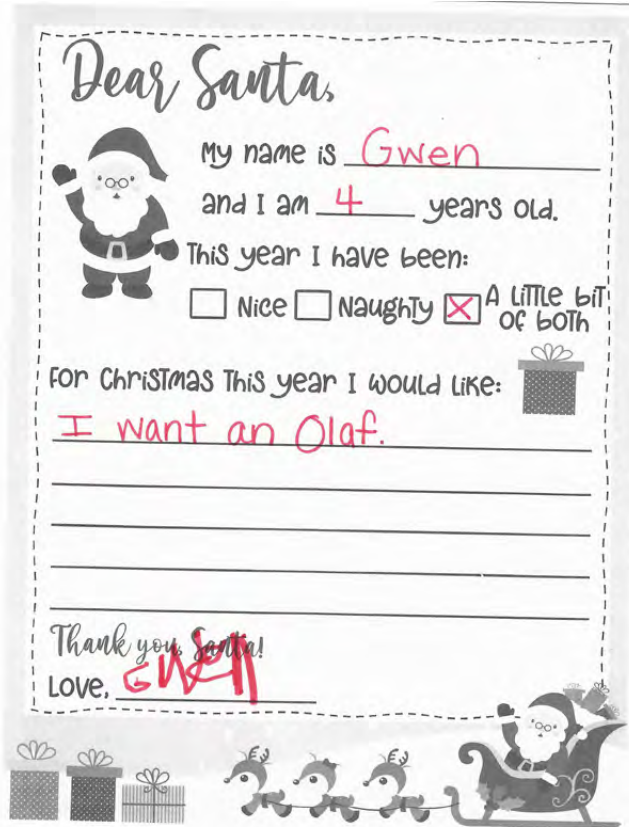 Dear Santa,
My name is Gwen
and I am 4 years old.
This year I have been:
Nice Naughty X A little bit
of both
For Christmas This year I would like:
I want an Olaf.
Thank you, Santa!
Love, Gwen